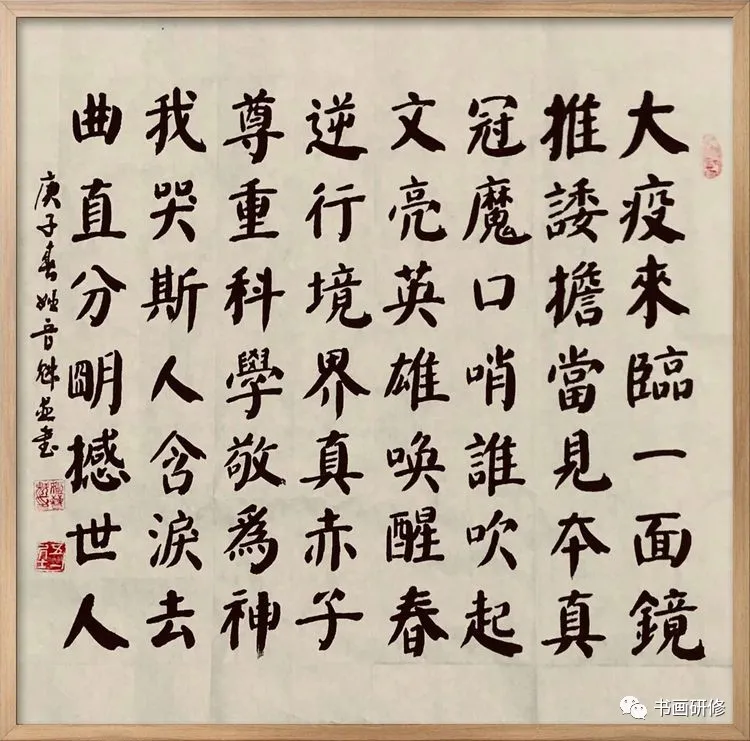 大疫來臨一面鏡
推諉擔當見本真
冠魔口哨誰吹起
文亮英雄喚醒春
逆行境界真赤子
尊重科學敬爲神
我哭斯人含淚去
曲直分明撼世人
庚子春
书画研修